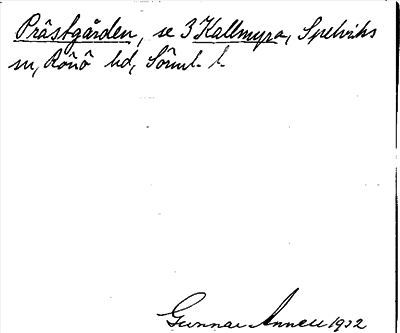 Prästgården, se 3 Kallmyra, Spelviks
sn, Rönö hd, Söml. l.
Gunnar Annell 1932